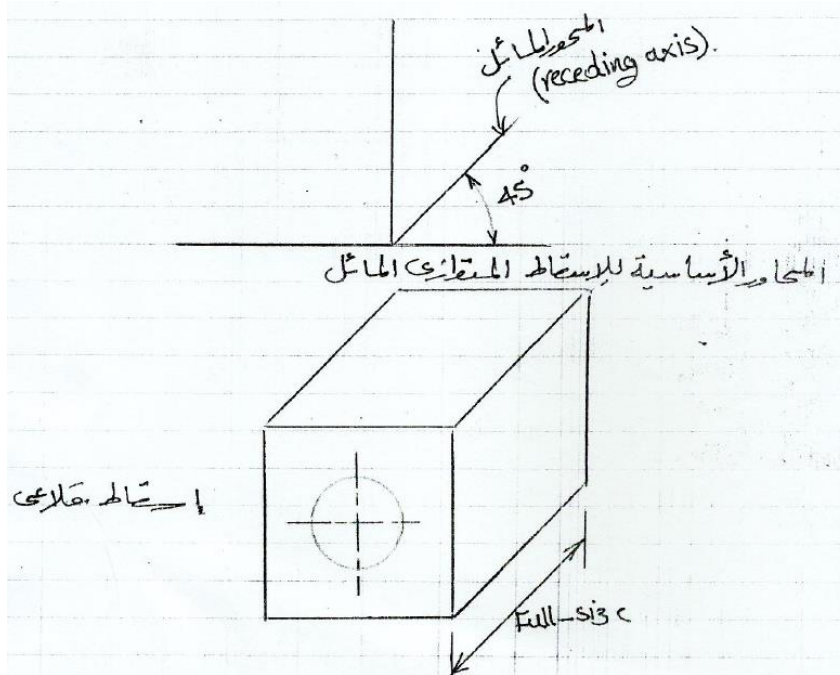 المحور المائل
(receding axis).
45°
المحاور الأساسية للإسقاط المتوازى المائل
إسقاط قلاعى
Full-size